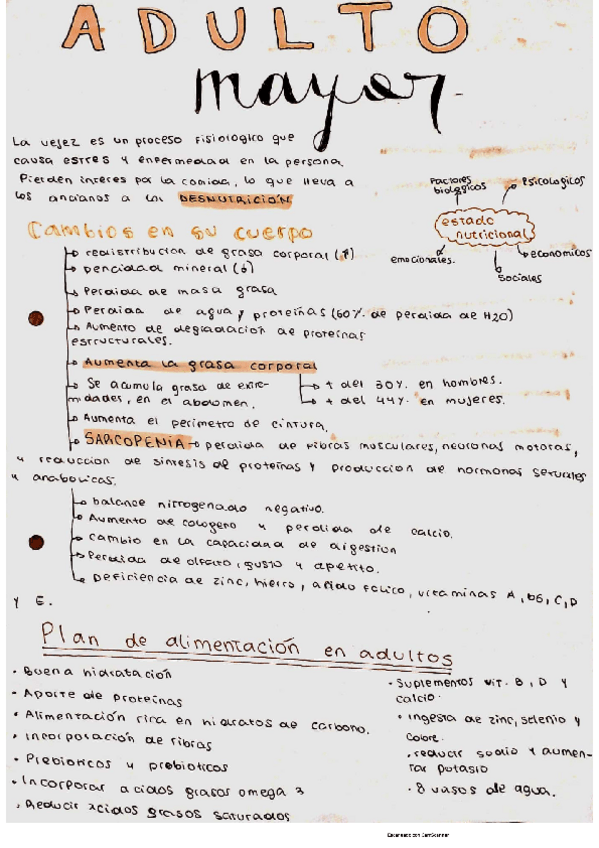 ADULTO
mayor.
La vejez es un proceso fisiologico que
causa estres y enfermedad en la persona.
Pierden interes por la comida, lo que lleva a
los ancianos a la DESNUTRICIÓN
Factores biologicos
Psicologicos
estado nutricional
emocionales.
economicos
sociales
Cambios en su cuerpo
redistribucion de grasa corporal (↑)
dencidad mineral (↓)
Perdida de masa grasa
Perdida de agua y proteinas (60% de perdida de H2O)
Aumento de degradacion de proteinas
estructurales.
Aumenta la grasa corporal
+ del 30% en hombres.
+ del 44% en mujeres.
Se acumula grasa de extre-
midades, en el abdomen.
Aumenta el perimetro de cintura.
SARCOPENIA → perdida de fibras musculares, neuronas motoras,
y reduccion de sintesis de proteinas y produccion de hormonas sexuales
y anabolicas.
balance nitrogenado negativo.
Aumento de cologeno y perdida de calcio.
cambio en la capacidad de digestion
Perdida de olfato, gusto y apetito.
Deficiencia de zinc, hierro, acido folico, vitaminas A, b6, C, D
y E.
Plan de alimentación en adultos
• Buena hidratación
• Aporte de proteinas
• Alimentación rica en hidratos de carbono.
• Incorporación de fibras
• Prebioticos y probioticos
• Incorporar acidos grasos omega 3
• Reducir acidos grasos saturados
• Suplementos vit. B, D y
calcio.
• ingesta de zinc, selenio y
cobre.
• reducir sodio y aumen-
tar potasio
• 8 vasos de agua.
Escaneado con CamScanner